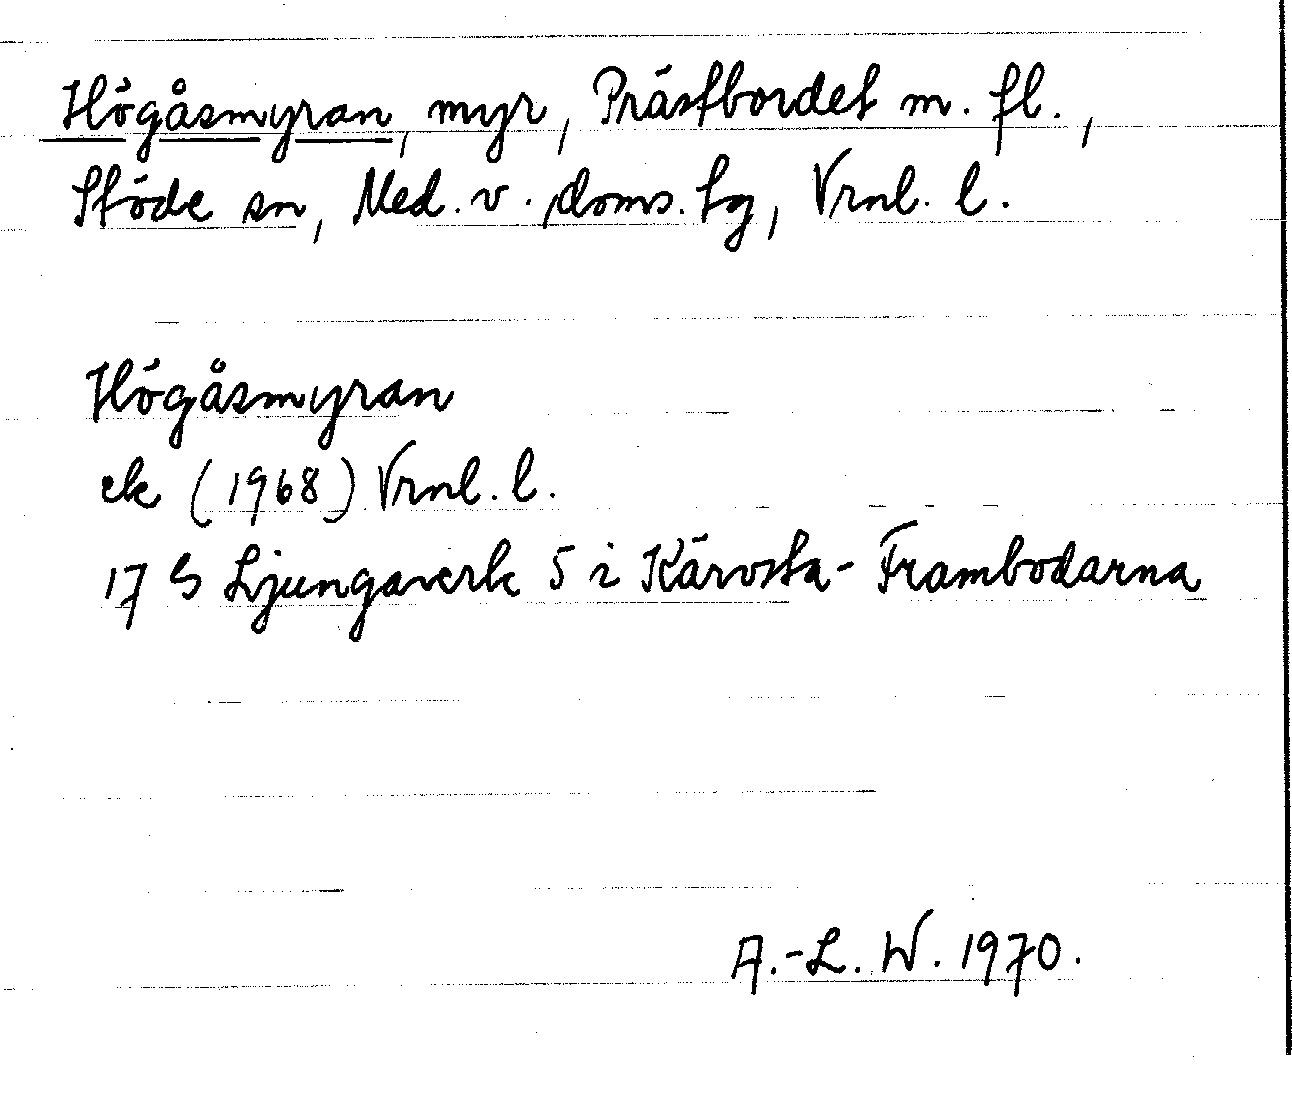 Högåsmyran, myr, Prästbordet m. fl.,
Stöde sn, Med. v. doms. tg, Vrnl. l.
Högåsmyran
ek (1968) Vrnl. l.
17 G Ljungaverk 5 i Kärvsta-Frambodarna
A.-L. W. 1970.